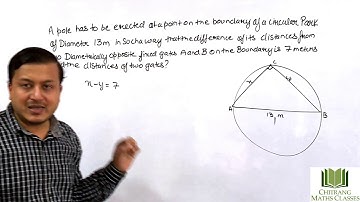 A pole has to be erected at a point on the boundary of a circular Park
of Diameter 13m in Such a way that the difference of its distances from
Diametrically opposite fixed gates A and B on the Boundary is 7 meters
the distances of two gates?
x-y=7
C
x
y
A
B
13 m
CHITRANG
MATHS CLASSES